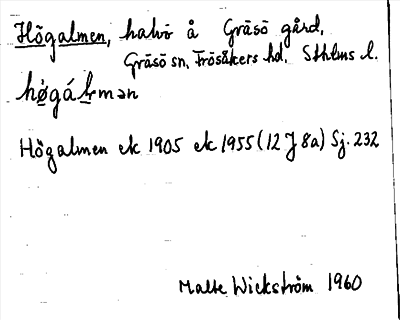 Högalmen, halvö å Gräsö gård,
Gräsö sn, Frösåkers hd, Sthlms l.
hø̀gáḷmən
Högalmen ek 1905 ek 1955 (12 J 8a) Sj. 232
Malte Wickström 1960